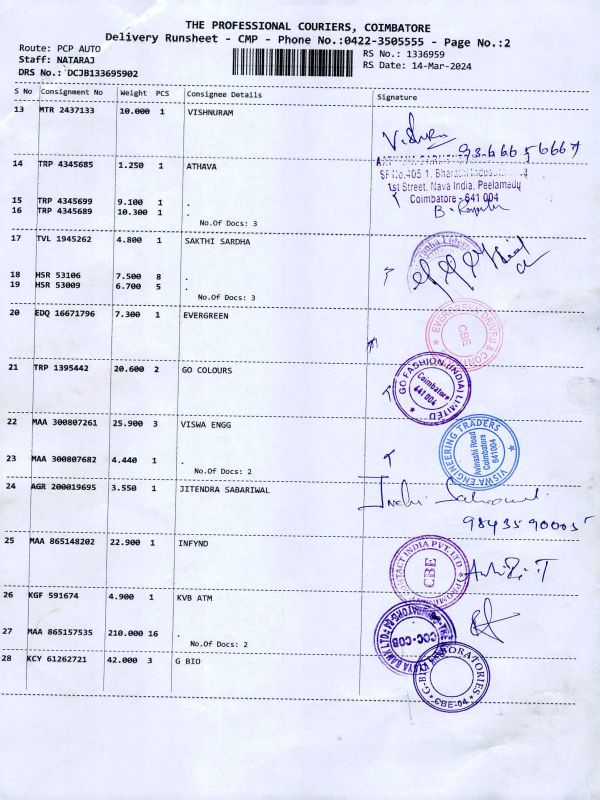 THE PROFESSIONAL COURIERS, COIMBATORE
Delivery Runsheet - CMP - Phone No.:0422-3505555 - Page No.:2
Route: PCP AUTO
RS No.: 1336959
Staff: NATARAJ
RS Date: 14-Mar-2024
DRS No.: DCJB133695902
S No Consignment No Weight PCS Consignee Details Signature
13 MTR 2437133 10.000 1 VISHNURAM
14 TRP 4345685 1.250 1 ATHAVA
SF No.405 1, Bharathi
1st Street, Nava India, Peelamedu
Coimbatore - 641 004
15 TRP 4345699 9.100 1 .
16 TRP 4345689 10.300 1 .
No.Of Docs: 3
17 TVL 1945262 4.800 1 SAKTHI SARDHA
18 HSR 53106 7.500 8 .
19 HSR 53009 6.700 5 .
No.Of Docs: 3
20 EDQ 16671796 7.300 1 EVERGREEN
CBE
21 TRP 1395442 20.600 2 GO COLOURS
GO FASHION (INDIA) LIMITED
Coimbatore
641 004
22 MAA 300807261 25.900 3 VISWA ENGG
VISWA ENGINEERING TRADERS
Avinashi Road
Coimbatore
641004
23 MAA 300807682 4.440 1 .
No.Of Docs: 2
24 AGR 200019695 3.550 1 JITENDRA SABARIWAL
25 MAA 865148202 22.900 1 INFYND
INDIA PVT LTD
CBE
26 KGF 591674 4.900 1 KVB ATM
27 MAA 865157535 210.000 16 .
No.Of Docs: 2
28 KCY 61262721 42.000 3 G BIO
CBE-04